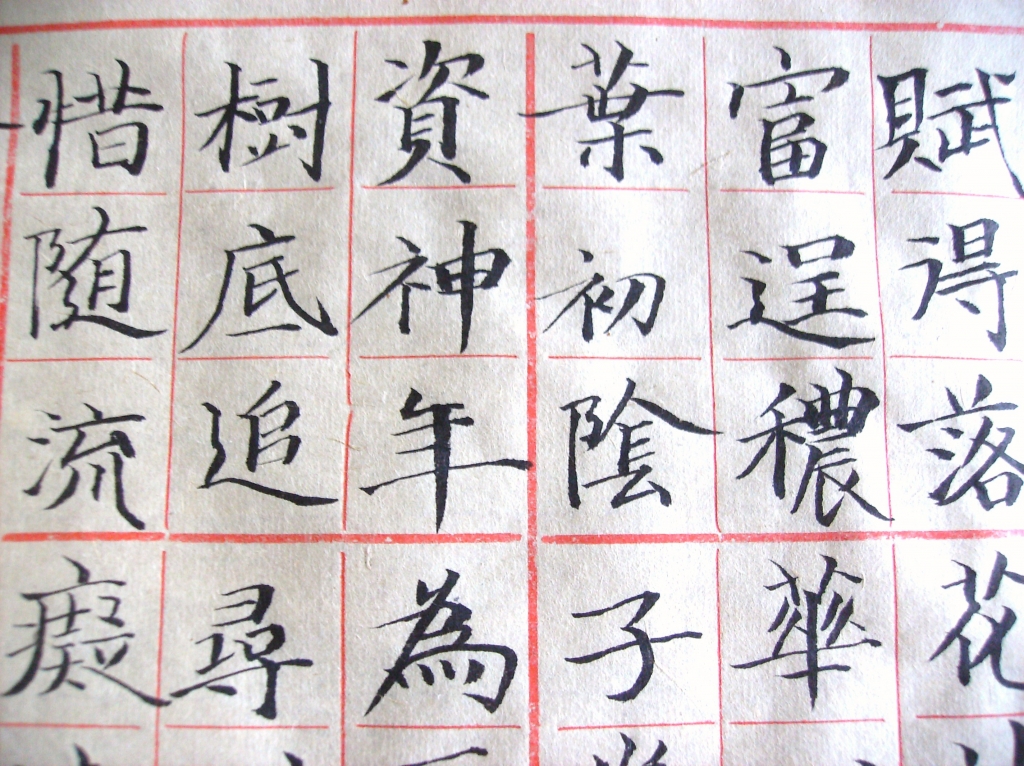 賦得落花
富逞穠華
葉初陰子
資神年為
樹底追尋
惜随流癡